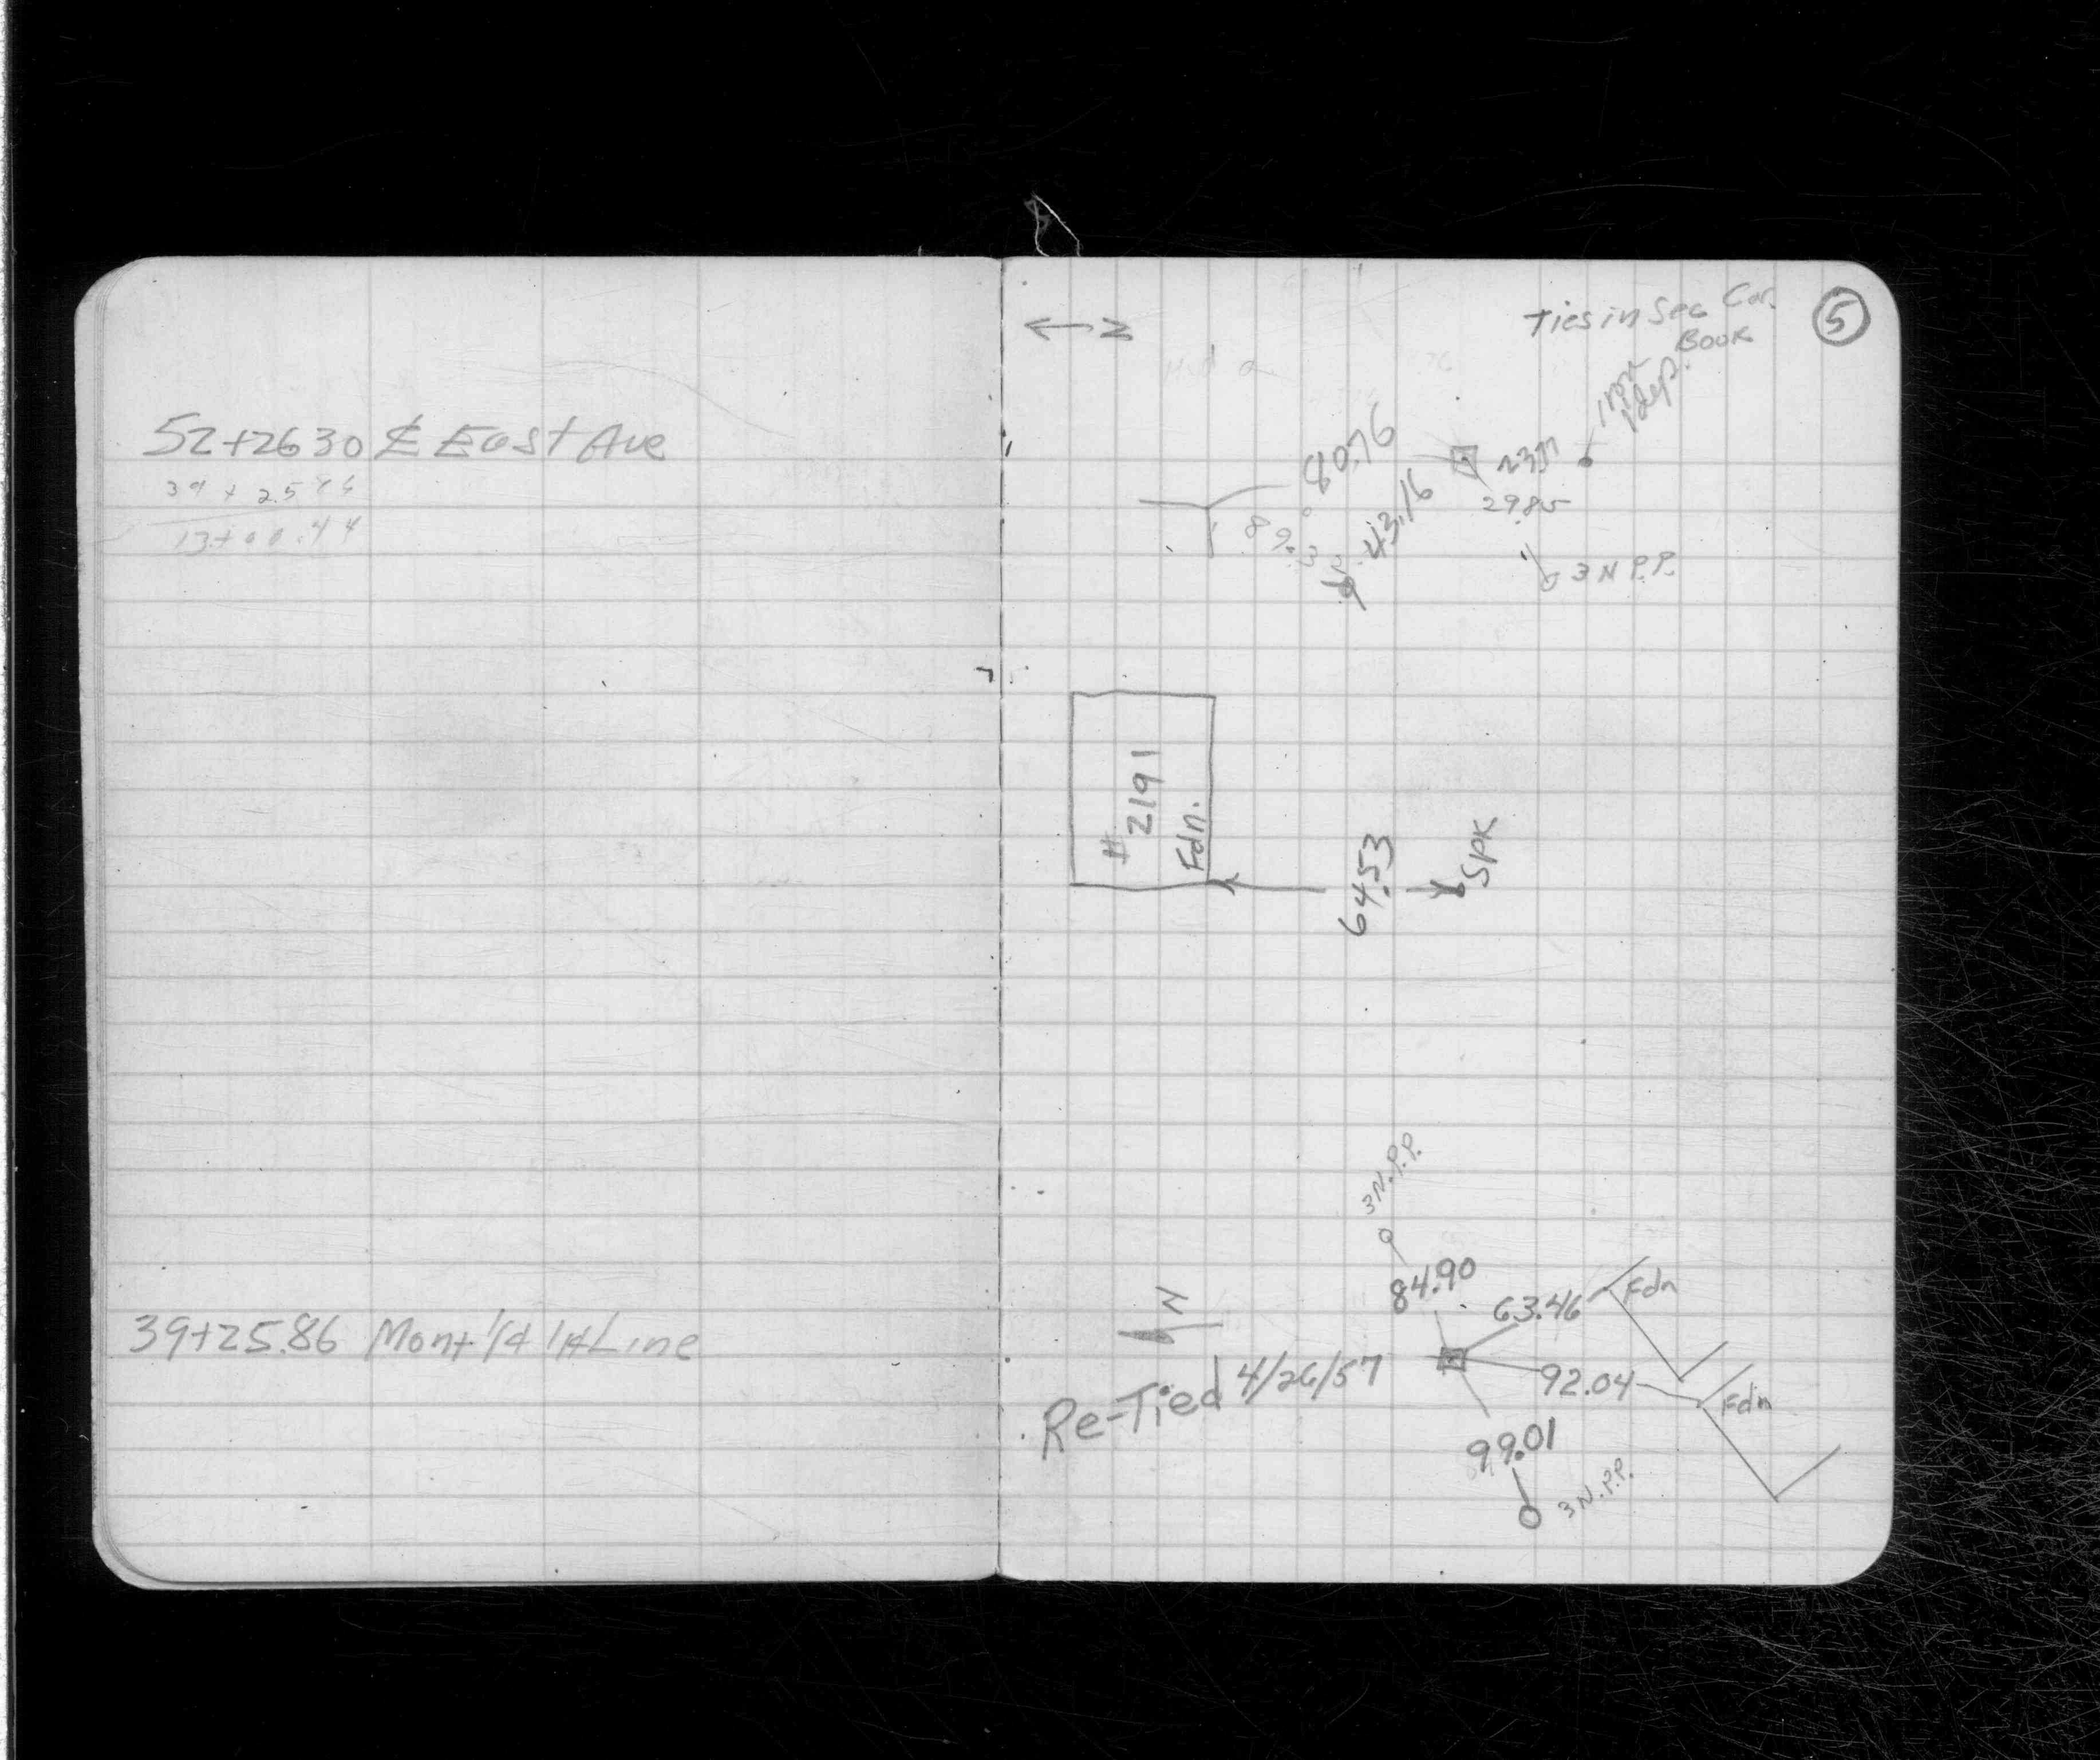 52+26 30 ℄ East Ave
39 + 25 86
13+00.44
39+25.86 Mon+ 1/4 1/4 Line
5
Ties in Sec Cor.
Book
N
Iron
1' dep.
80.76
43.16
29.85
3 N P.P.
#
2191
Fdn.
64.53
SPK
3 N.P.P.
84.90
63.46
Fdn
N
Re-Tied 4/26/57
92.04
Fdn
99.01
3 N.P.P.